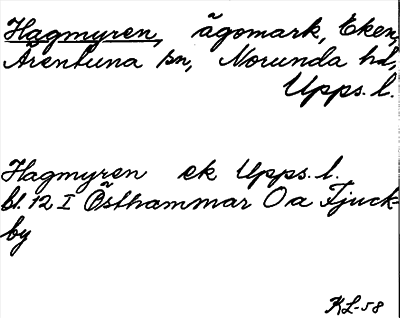 Hagmyren, ägomark, Eken,
Ärentuna sn, Norunda hd,
Upps. l.
Hagmyren ek Upps. l.
bl. 12 I Östhammar Oa Tjuck-
by
KL-58